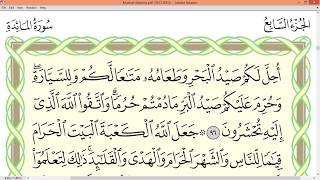 سُورَةُ المَائِدَة الجُزْءُ السَّابِعُ
أُحِلَّ لَكُمْ صَيْدُ الْبَحْرِ وَطَعَامُهُ مَتَاعًا لَّكُمْ وَلِلسَّيَّارَةِ
وَحُرِّمَ عَلَيْكُمْ صَيْدُ الْبَرِّ مَا دُمْتُمْ حُرُمًا وَاتَّقُوا اللَّهَ الَّذِي
إِلَيْهِ تُحْشَرُونَ ٩٦ جَعَلَ اللَّهُ الْكَعْبَةَ الْبَيْتَ الْحَرَامَ
قِيَامًا لِّلنَّاسِ وَالشَّهْرَ الْحَرَامَ وَالْهَدْيَ وَالْقَلَائِدَ ذَلِكَ لِتَعْلَمُوا